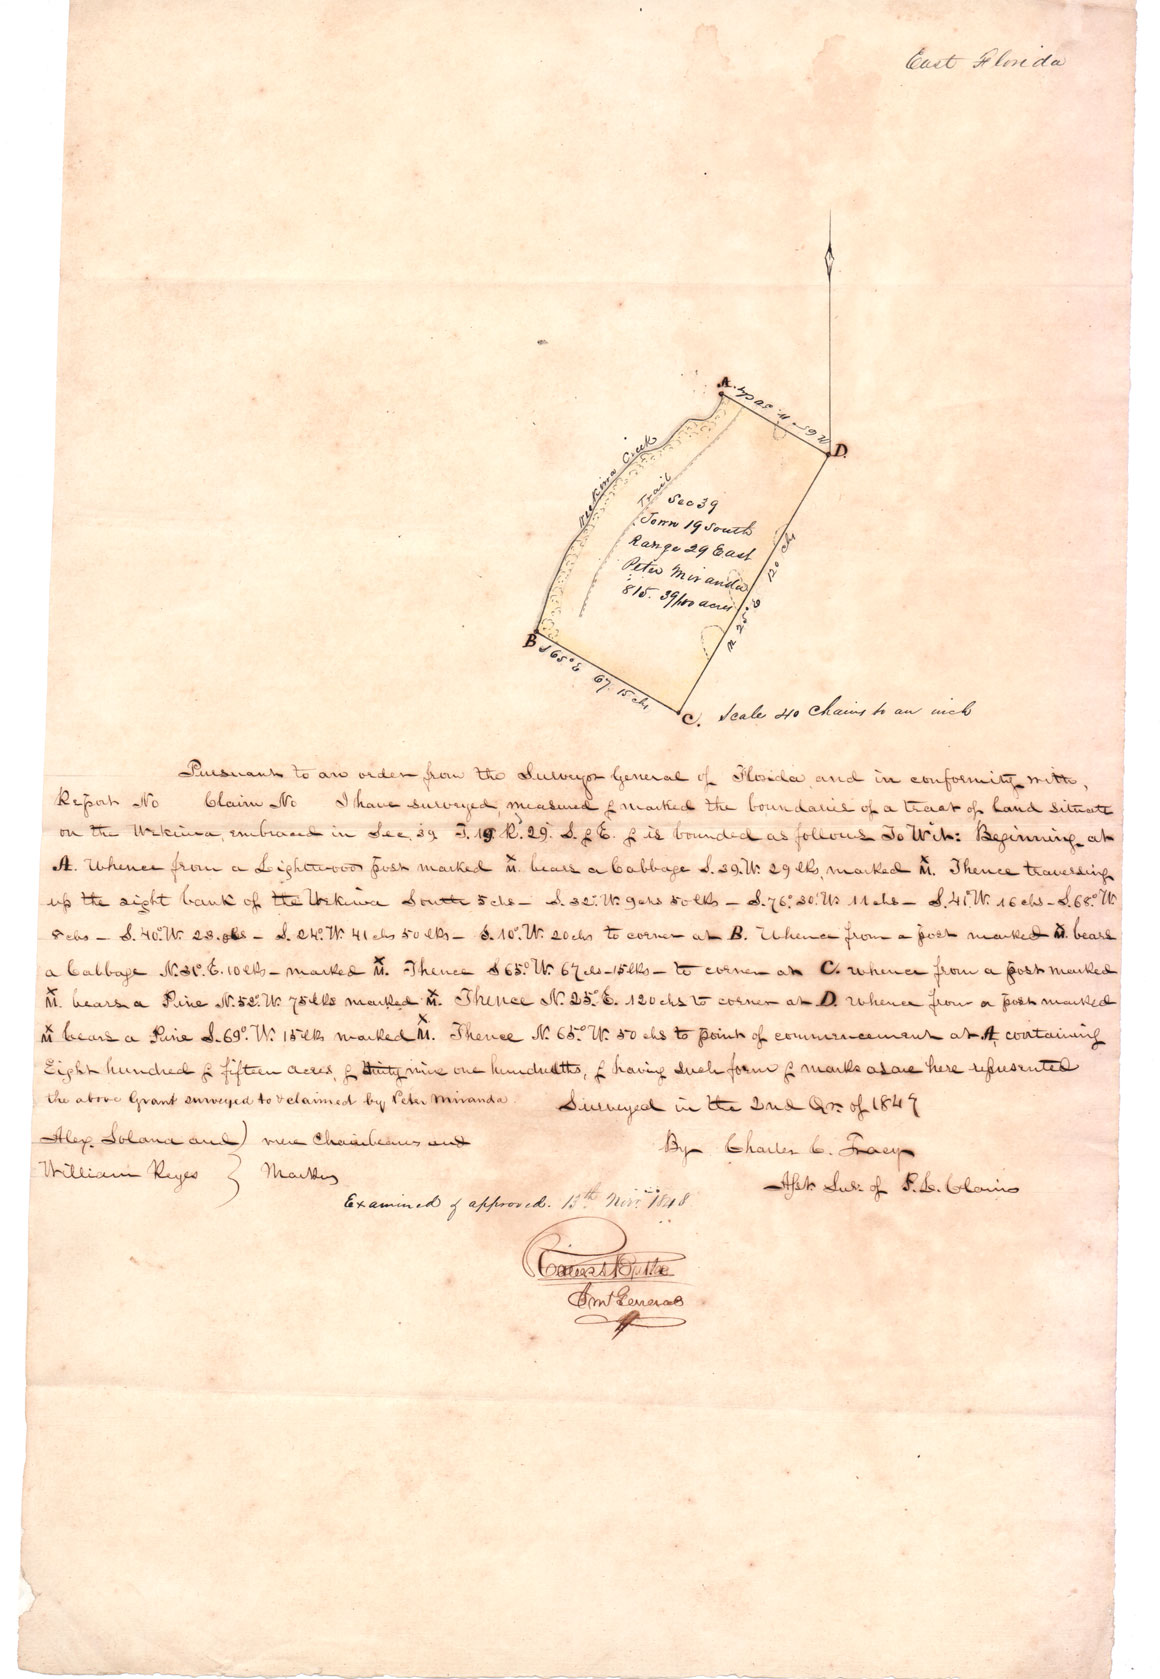 East Florida
A.
N 65° W. 50 ch.
D.
Wekiwa Creek
Trail
Sec 39
Town 19 South
Range 29 East
Peter Miranda
815. 39/100 acres
N 25° E 120 chs
B
S 65° E 67. 15 chs
C.
Scale 40 Chains to an inch
Pursuant to an order from the Surveyor General of Florida and in conformity with,
Report No Claim No I have surveyed, measured & marked the boundaries of a tract of land situate
on the Wekiwa embraced in Sec 39 T. 19 R. 29. S. & E. & is bounded as follows To Wit: Beginning at
A. Whence from a Lightwood post marked M bears a Cabbage S. 39. W. 29 lks, marked M. Thence traversing
up the right bank of the Wekiwa South 5 chs – S. 32° W. 9 chs 50 lks – S. 76° 30' W. 11 chs – S. 41° W. 16 chs – S. 68° W.
8 chs – S. 40° W. 23. chs – S. 24° W. 41 chs 50 lks – S. 10° W. 20 chs to corner at B. Whence from a post marked M bears
a Cabbage N. 31° E. 10 lks – marked M. Thence S 65° W. 67 chs – 15 lks – to corner at C. whence from a post marked
M. bears a Pine N. 52° W. 75 lks marked M. Thence N. 25° E. 120 chs to corner at D. whence from a post marked
M bears a Pine S. 69° W. 15 lks marked M. Thence N. 65° W. 50 chs to point of commencement at A, containing
Eight hundred & fifteen acres, & thirty nine one hundredths, & having such form & marks as are here represented
the above Grant surveyed to & claimed by Peter Miranda. Surveyed in the 2nd Qr. of 1849
Alex. Solana and } were Chainbearers and By Charles C. Tracy
William Reyes } Markers Asst. Sur. of P. L. Claims
Examined & approved. 13th Novr. 1848
Surv General